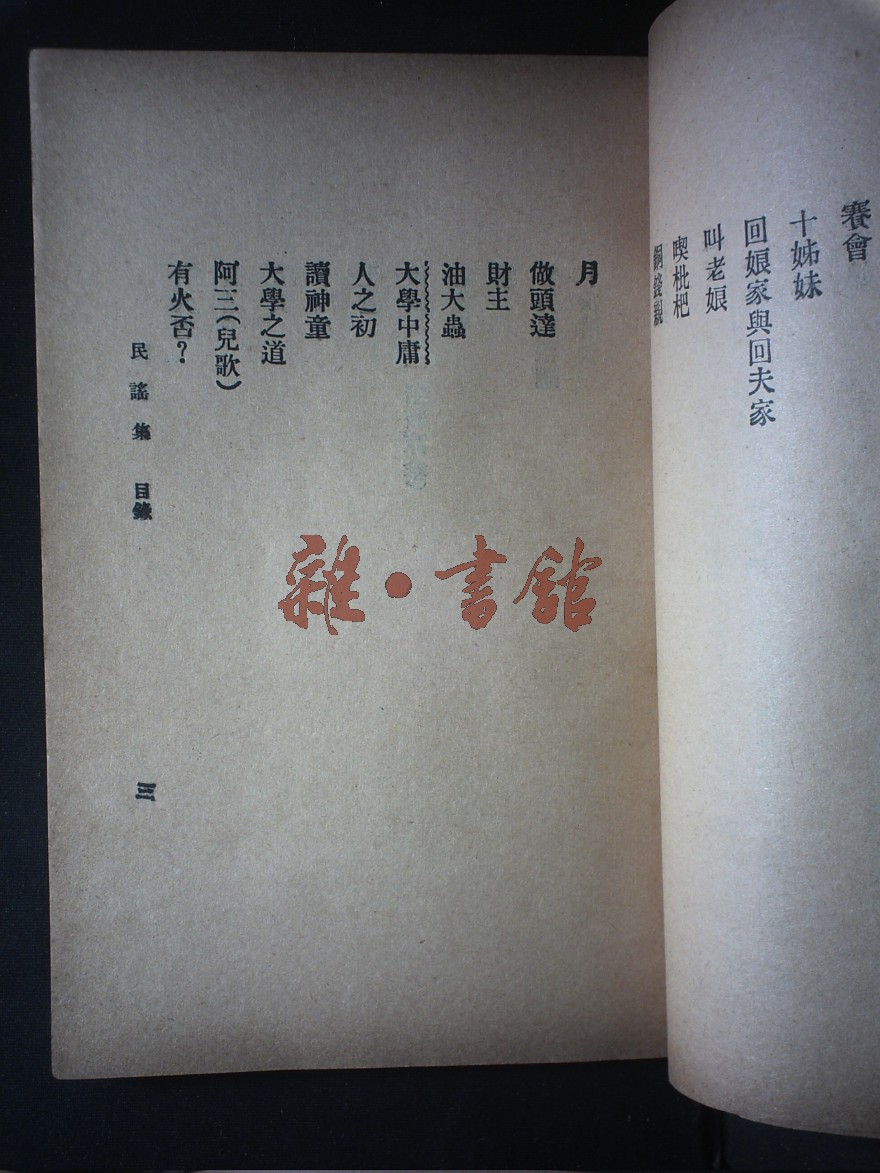 賽會
十姊妹
回娘家與回夫家
叫老娘
喫枇杷
銅錢親
月
做頭達
財主
油大蟲
大學中庸
人之初
讀神童
大學之道
阿三(兒歌)
有火否？
民謠集 目錄
三
雜·書館